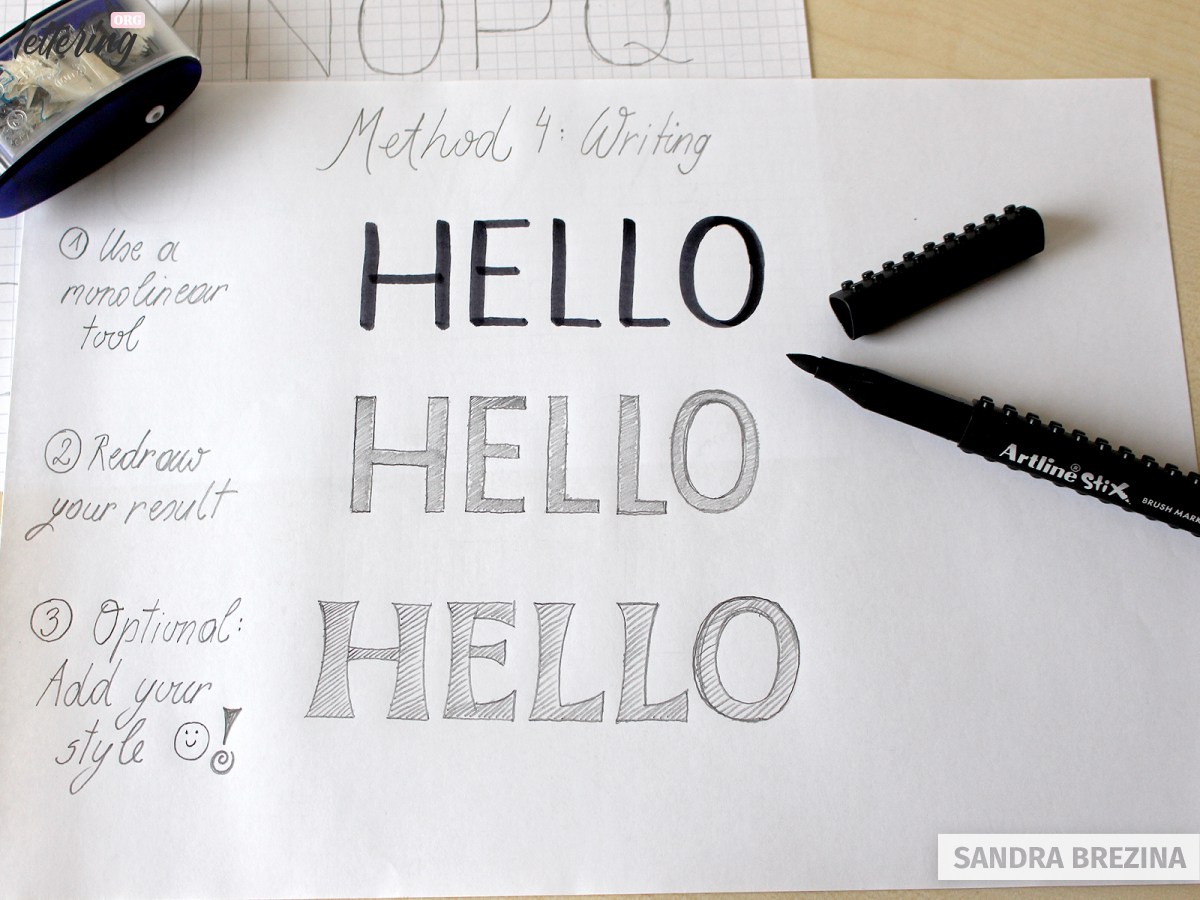 lettering
ORG
NOPQ
Method 4: Writing
① Use a
monolinear
tool
HELLO
② Redraw
your result
HELLO
③ Optional:
Add your
style ☺!
HELLO
Artline® Stix
BRUSH MARK
SANDRA BREZINA